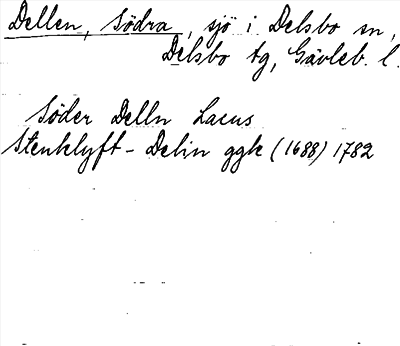 Dellen, Södra, sjö i Delsbo sn,
Delsbo tg, Gävleb. l.
Söder Delln Lacus
Stenklyft - Delin ggk (1688) 1782